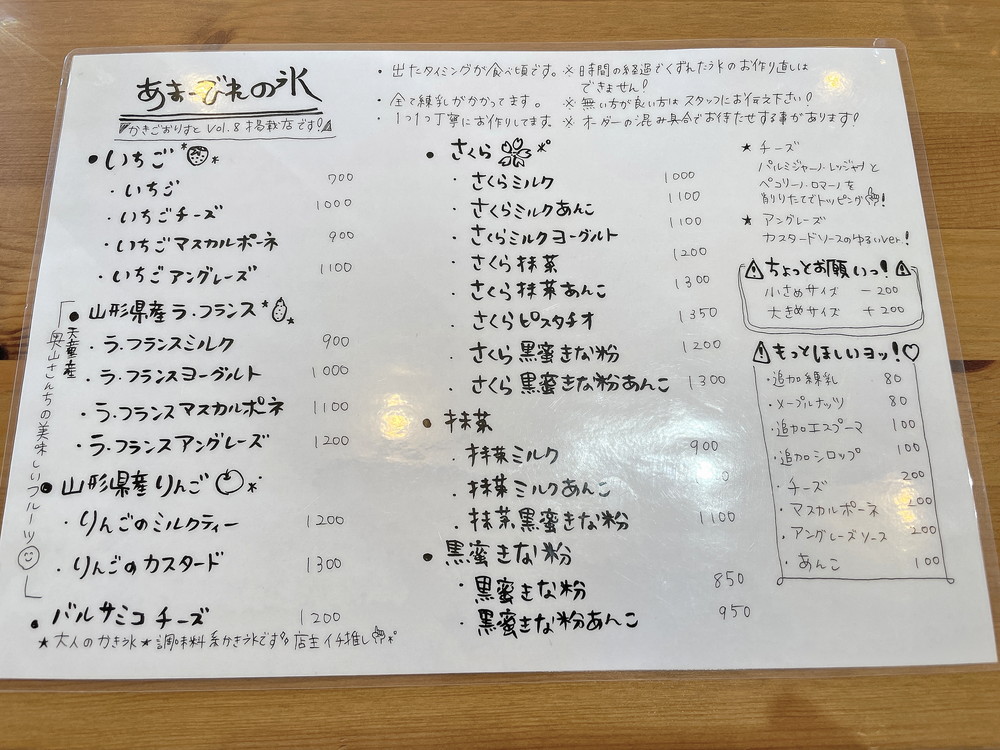 あまーびれの氷
かきごおりすと Vol.8 掲載店です!
・出たタイミングが食べ頃です。※時間の経過でくずれた氷のお作り直しは
できません!
・全て練乳がかかってます。 ※無い方が良い方はスタッフにお伝え下さい!
・1つ1つ丁寧にお作りしてます。※オーダーの混み具合でお待たせする事があります!
●いちご
・いちご 700
・いちごチーズ 1000
・いちごマスカルポーネ 900
・いちごアングレーズ 1100
●山形県産ラ・フランス
・ラ・フランスミルク 900
・ラ・フランスヨーグルト 1000
・ラ・フランスマスカルポネ 1100
・ラ・フランスアングレーズ 1200
●山形県産りんご
・りんごのミルクティー 1200
・りんごのカスタード 1300
天童産
奥山さんちの美味しいフルーツ
●バルサミコチーズ 1200
★大人のかき氷★調味料系かき氷です 店主イチ推し
●さくら
・さくらミルク 1000
・さくらミルクあんこ 1100
・さくらミルクヨーグルト 1100
・さくら抹茶 1200
・さくら抹茶あんこ 1300
・さくらピスタチオ 1350
・さくら黒蜜きな粉 1200
・さくら黒蜜きな粉あんこ 1300
●抹茶
・抹茶ミルク 900
・抹茶ミルクあんこ
・抹茶黒蜜きな粉 1100
●黒蜜きな粉
・黒蜜きな粉 850
・黒蜜きな粉あんこ 950
★チーズ
パルミジャーノ・レッジャーノと
ペコリーノ・ロマーノを
削りたてでトッピング!
★アングレーズ
カスタードソースのゆるいver!
ちょっとお願いっ!
小さめサイズ -200
大きめサイズ +200
もっとほしいヨッ!♡
・追加練乳 80
・メープルナッツ 80
・追加エスプーマ 100
・追加シロップ 100
・チーズ 200
・マスカルポーネ 200
・アングレーズソース 200
・あんこ 100